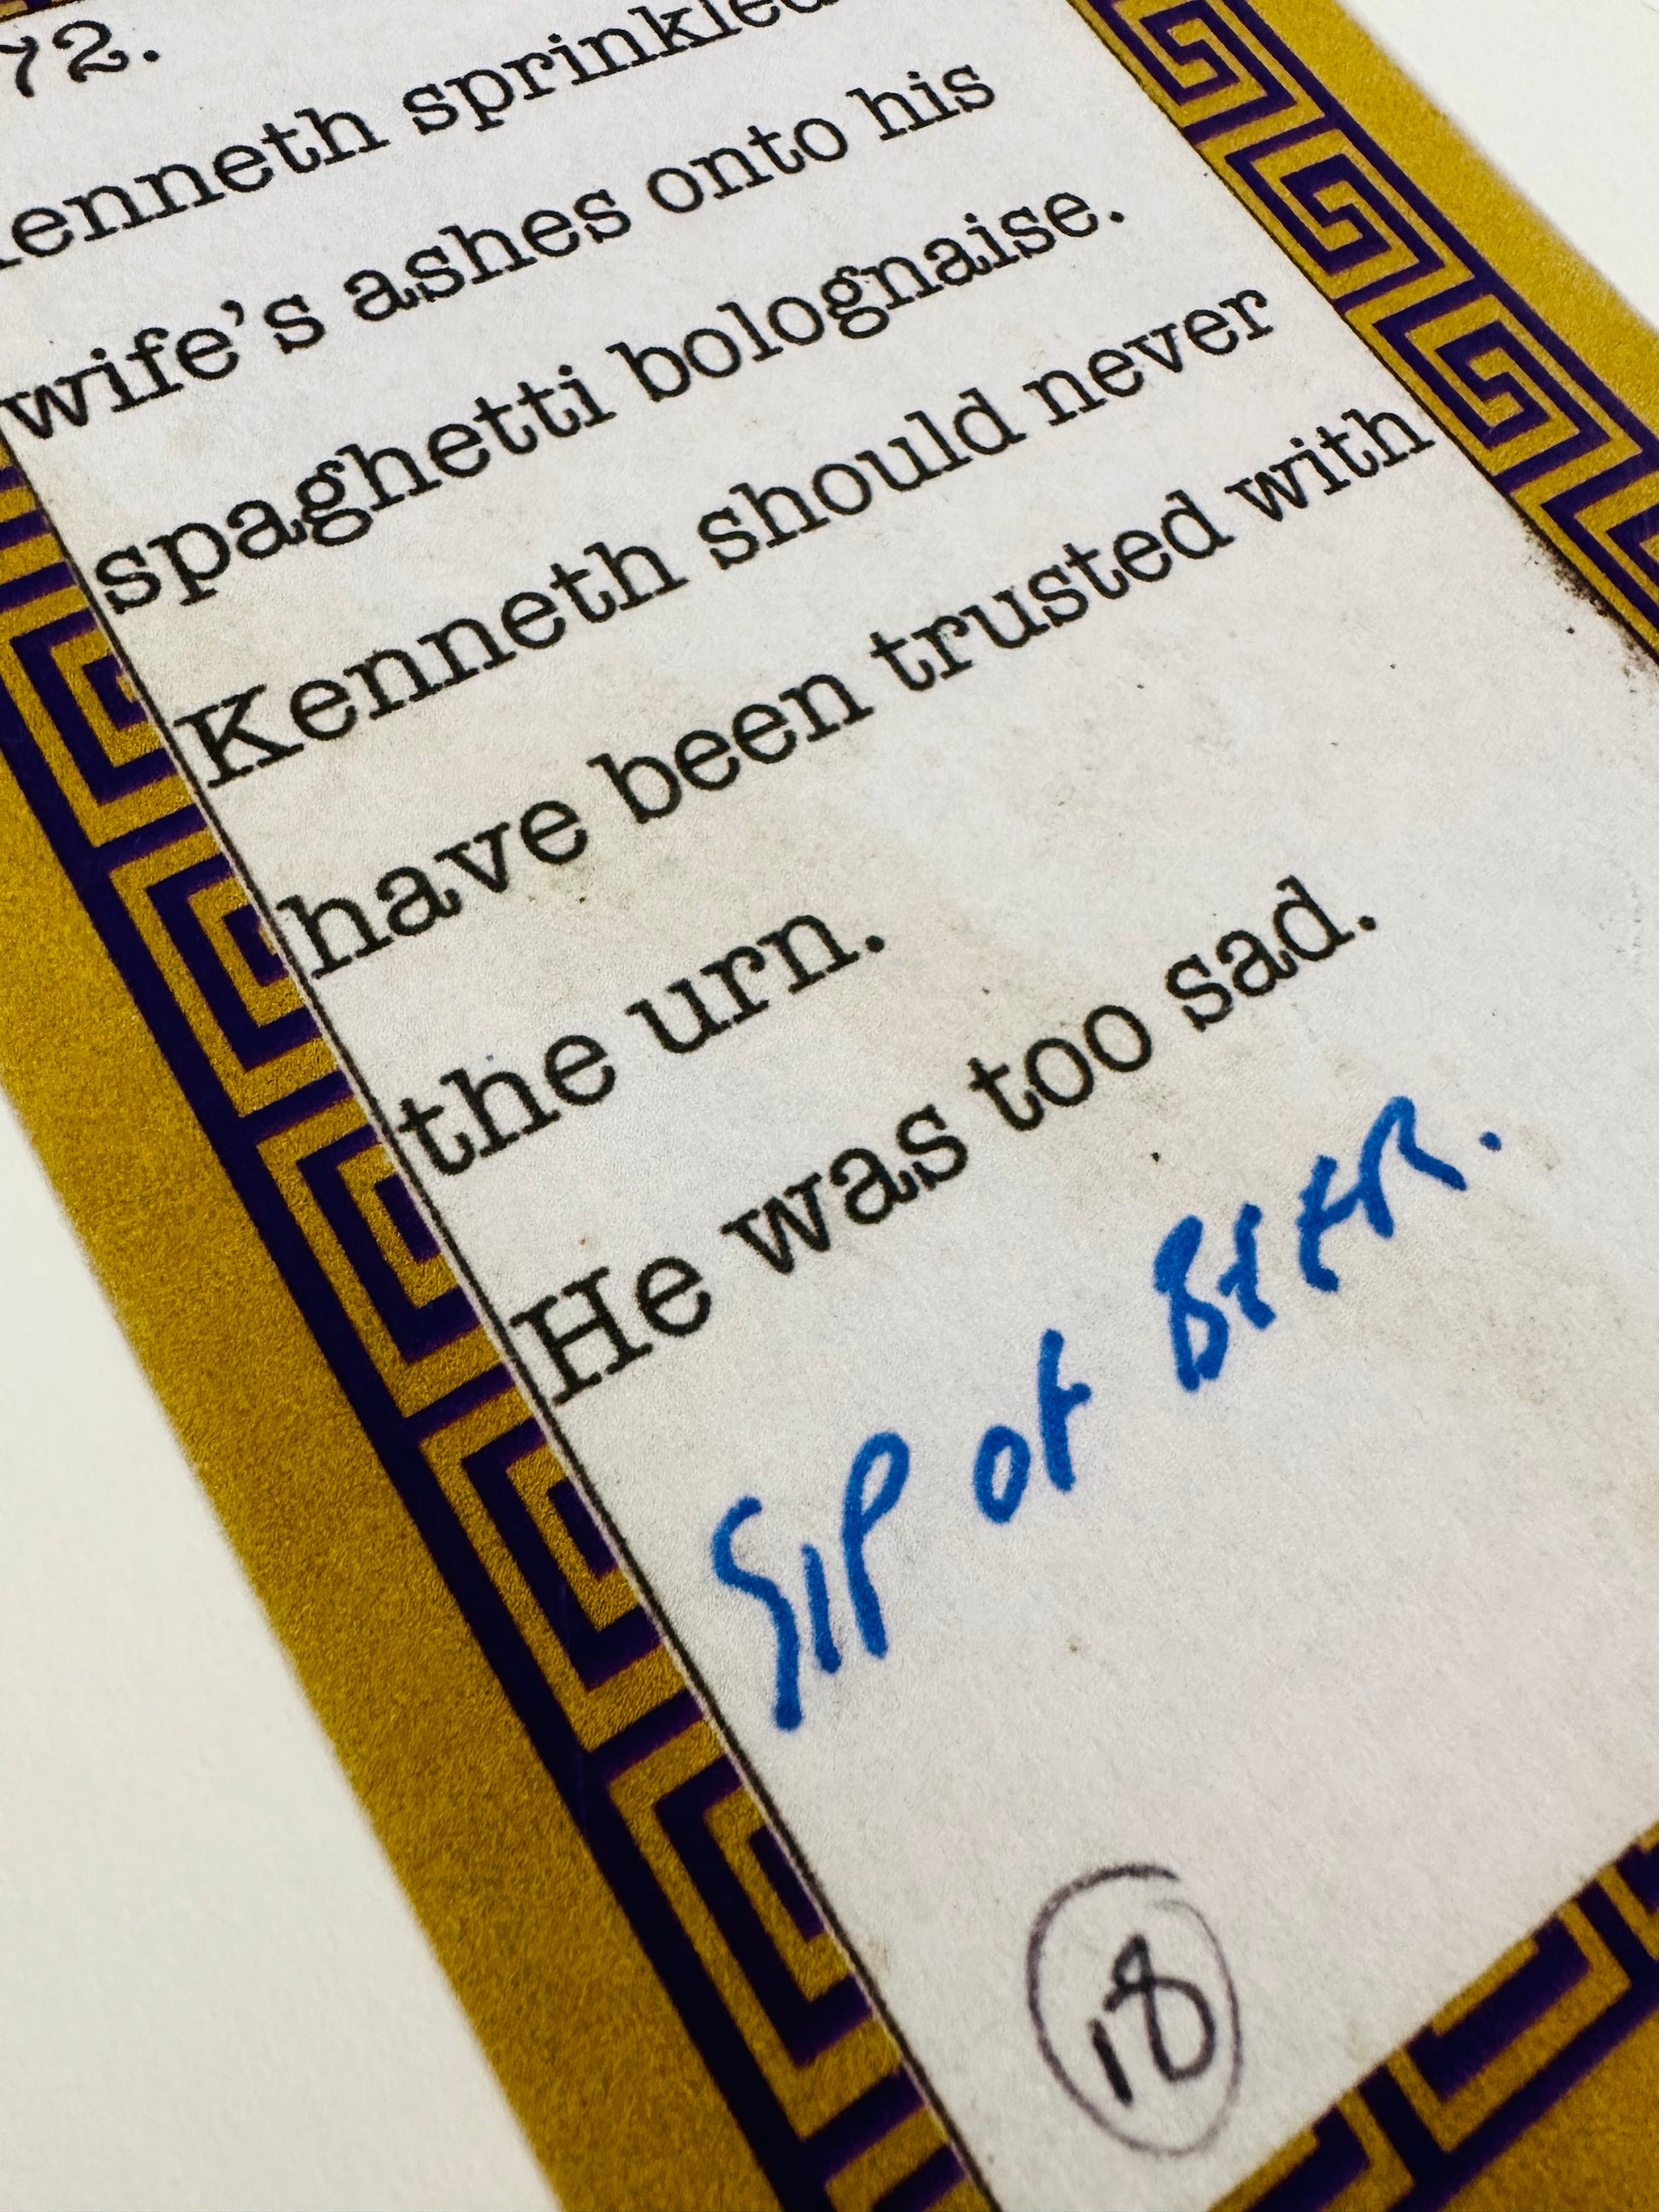 72.
Kenneth sprinkled
wife's ashes onto his
spaghetti bolognaise.
Kenneth should never
have been trusted with
the urn.
He was too sad.
SIP OF BEER.
18